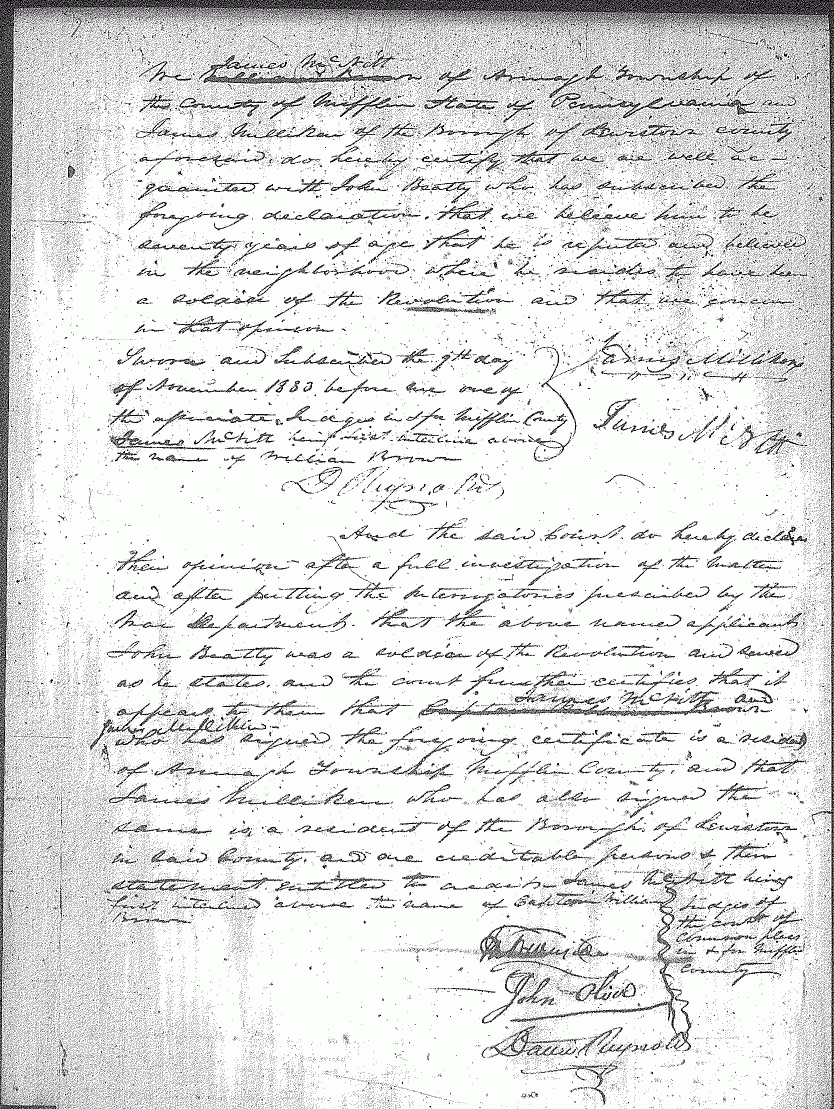 James McNitt
We of Armagh Township of
the County of Mifflin State of Pennsylvania and
James Milliken of the Borough of Lewistown county
aforesaid do hereby certify that we are well ac-
quainted with John Beatty who has subscribed the
foregoing declaration. that we believe him to be
seventy years of age that he is reputed and believed
in the neighborhood where he resides to have been
a soldier of the Revolution and that we concur
in that opinion.
Sworn and Subscribed the 9th day
of November 1833 before me one of
the associate Judges in & for Mifflin County
James McNitt being first interlined above
the name of William Brown
James Milliken
James McNitt
D Reynolds
And the said Court do hereby declare
their opinion after a full investigation of the matter
and after putting the Interrogatories prescribed by the
War Department. that the above named applicant
John Beatty was a soldier of the Revolution and served
as he states. and the court further certifies that it
James McNitt and
appears to them that Captain William Brown
James Milliken
who has signed the foregoing certificate is a resident
of Armagh Township Mifflin County. and that
James Milliken who has also signed the
same is a resident of the Borough of Lewistown
in said County. and are creditable persons & their
statement entitled to credit James McNitt being
first interlined above the name of Captain William
Brown
Judges of
the court of
Common pleas
in & for Mifflin
County
John Oliver
David Reynolds